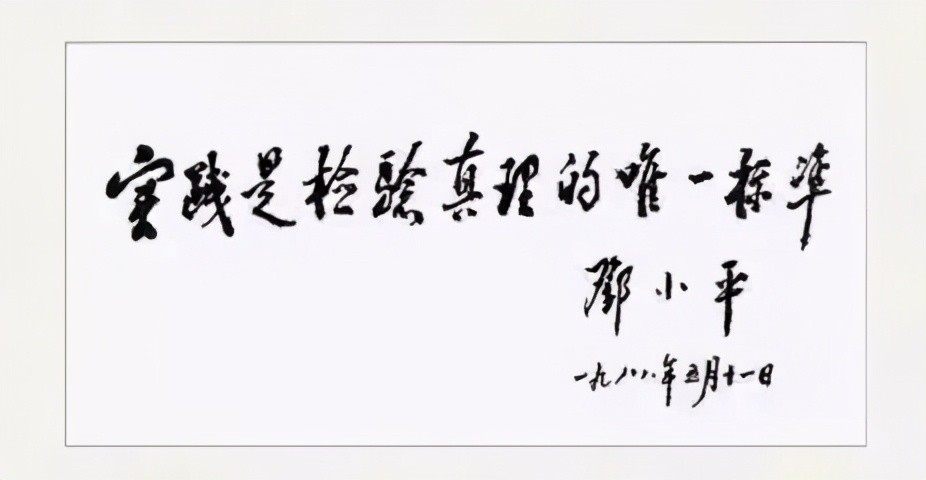 实践是检驗真理的唯一標準
鄧小平
一九八八年五月十一日